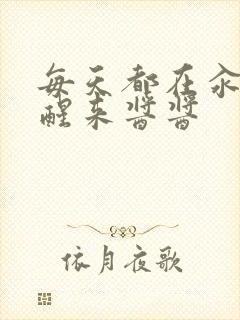 每天都在汆
醒来酱酱
依月夜歌